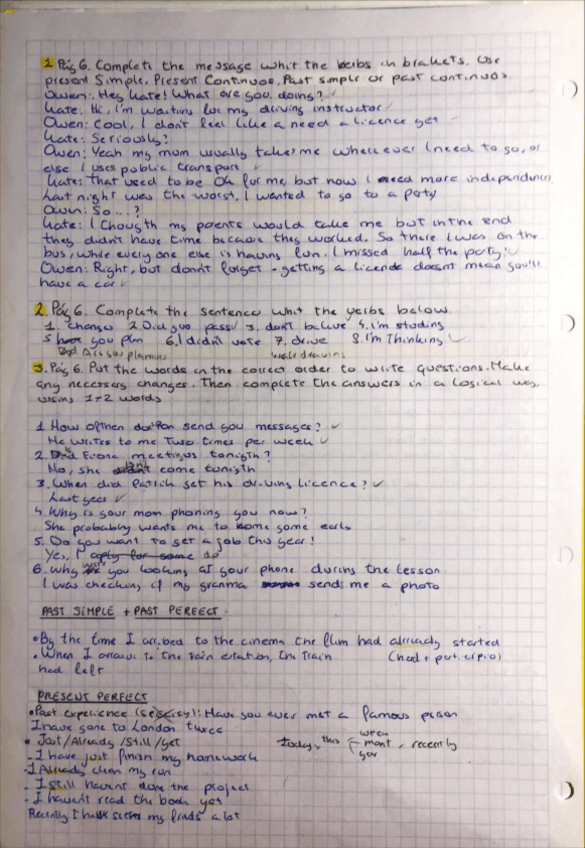 1 Pág 6. Complete the message whit the berbs in brakets. Use
present Simple, Present Continuos, Past simple or past continuos.
Owen: Hey Kate! What are you doing? ✓
Kate: Hi, I'm waiting for my driving instructor ✓
Owen: Cool, I don't feel like a need a licence yet ✓
Kate: Seriously?
Owen: Yeah my mum usually takes me where ever I need to go, or
else I uses public transport ✓
Kate: That used to be Ok for me, but now I need more independence
Last night was the worst. I wanted to go to a party
Owen: So...?
Kate: I though my parents would take me but in the end
they didn't have time because they worked. So there I was on the
bus, while every one else is having fun. I missed half the party! ✓
Owen: Right, but don't forget - getting a licence doesnt mean you'll
have a car ✓
2. Pág 6. Complete the sentence whit the verbs below.
1. changes 2. Did you pass ✓ 3. don't believe 4. I'm studing
5 you plan 6. I didn't vote 7. drive 8. I'm Thinking ✓
Are you planning were drawing
3. Pág 6. Put the words in the correct order to write questions. Make
any necessary changes. Then complete the answers in a logical way
using 1-2 words
1 How ofthen send you messages? ✓
He writes to me Two times per week ✓
2. meeting us tonigth?
No, she come tonigth
3. When did Patrick get his driving licence? ✓
Last year ✓
4. Why is your mom phoning you now?
She probably wants me to home some early
5. Do you want to get a job this year!
Yes, I apply for some do
6. Why were you looking at your phone during the lesson
I was checking if my granma sends me a photo
PAST SIMPLE + PAST PEREECT
• By the time I arribed to the cinema the flim had already started
• When I to the the train (had + participio)
had left
PRESENT PERFECT
• Past experience: Have you ever met a famous person
I have gone to London
• Just/Already/Still/Yet today, this week
mont, recently
year
- I have just finish my homework
- I Already clean my
- I still havent done the project
- I haven't read the book yet
Recently I my a lot